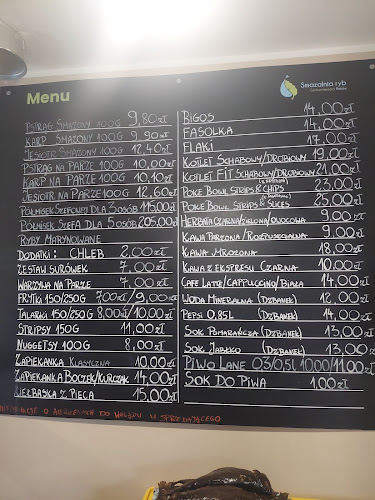 Menu
Smażalnia ryb
PSTRĄG SMAŻONY 100G 9,80zł
KARP SMAŻONY 100G 9,90zł
JESIOTR SMAŻONY 100G 12,40zł
PSTRĄG NA PARZE 100G 10,00zł
KARP NA PARZE 100G 10,10zł
JESIOTR NA PARZE 100G 12,60zł
PÓŁMISEK SZEFOWEJ DLA 3 OSÓB 115,00zł
PÓŁMISEK SZEFA DLA 5 OSÓB 205,00zł
RYBY MARYNOWANE
DODATKI: CHLEB 2,00zł
ZESTAW SURÓWEK 7,00zł
WARZYWA NA PARZE 7,00zł
FRYTKI 150/250G 7,00zł/9,00zł
TALARKI 150/250G 8,00zł/10,00zł
STRIPSY 150G 11,00zł
NUGGETSY 100G 8,00zł
ZAPIEKANKA KLASYCZNA 10,00zł
ZAPIEKANKA BOCZEK/KURCZAK 14,00zł
KIEŁBASKA Z PIECA 15,00zł
INFORMACJE O ALERGENACH DO WGLĄDU U SPRZEDAJĄCEGO
BIGOS 14,00zł
FASOLKA 14,00zł
FLAKI 17,00zł
KOTLET SCHABOWY/DROBIOWY 19,00zł
KOTLET FIT SCHABOWY/DROBIOWY 21,00zł
POKE BOWL STRIPS & CHIPS 23,00zł
POKE BOWL STRIPS & SLICES 25,00zł
HERBATA CZARNA/ZIELONA/OWOCOWA 9,00zł
KAWA PARZONA/ROZPUSZCZALNA 9,00zł
KAWA MROŻONA 18,00zł
KAWA Z EKSPRESU CZARNA 10,00zł
CAFE LATTE/CAPPUCCINO/BIAŁA 14,00zł
WODA MINERALNA (DZBANEK) 12,00zł
PEPSI 0,85L (DZBANEK) 14,00zł
SOK POMARAŃCZA (DZBANEK) 13,00zł
SOK JABŁKO (DZBANEK) 13,00zł
PIWO LANE 0,3/0,5L 10,00/11,00zł
SOK DO PIWA 1,00zł